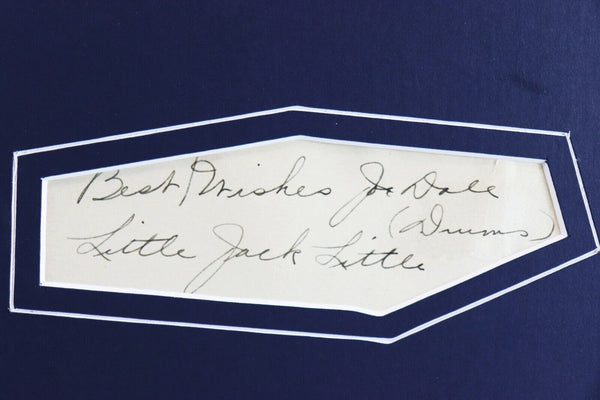 Best Wishes Joe Dale
(Drums)
Little Jack Little